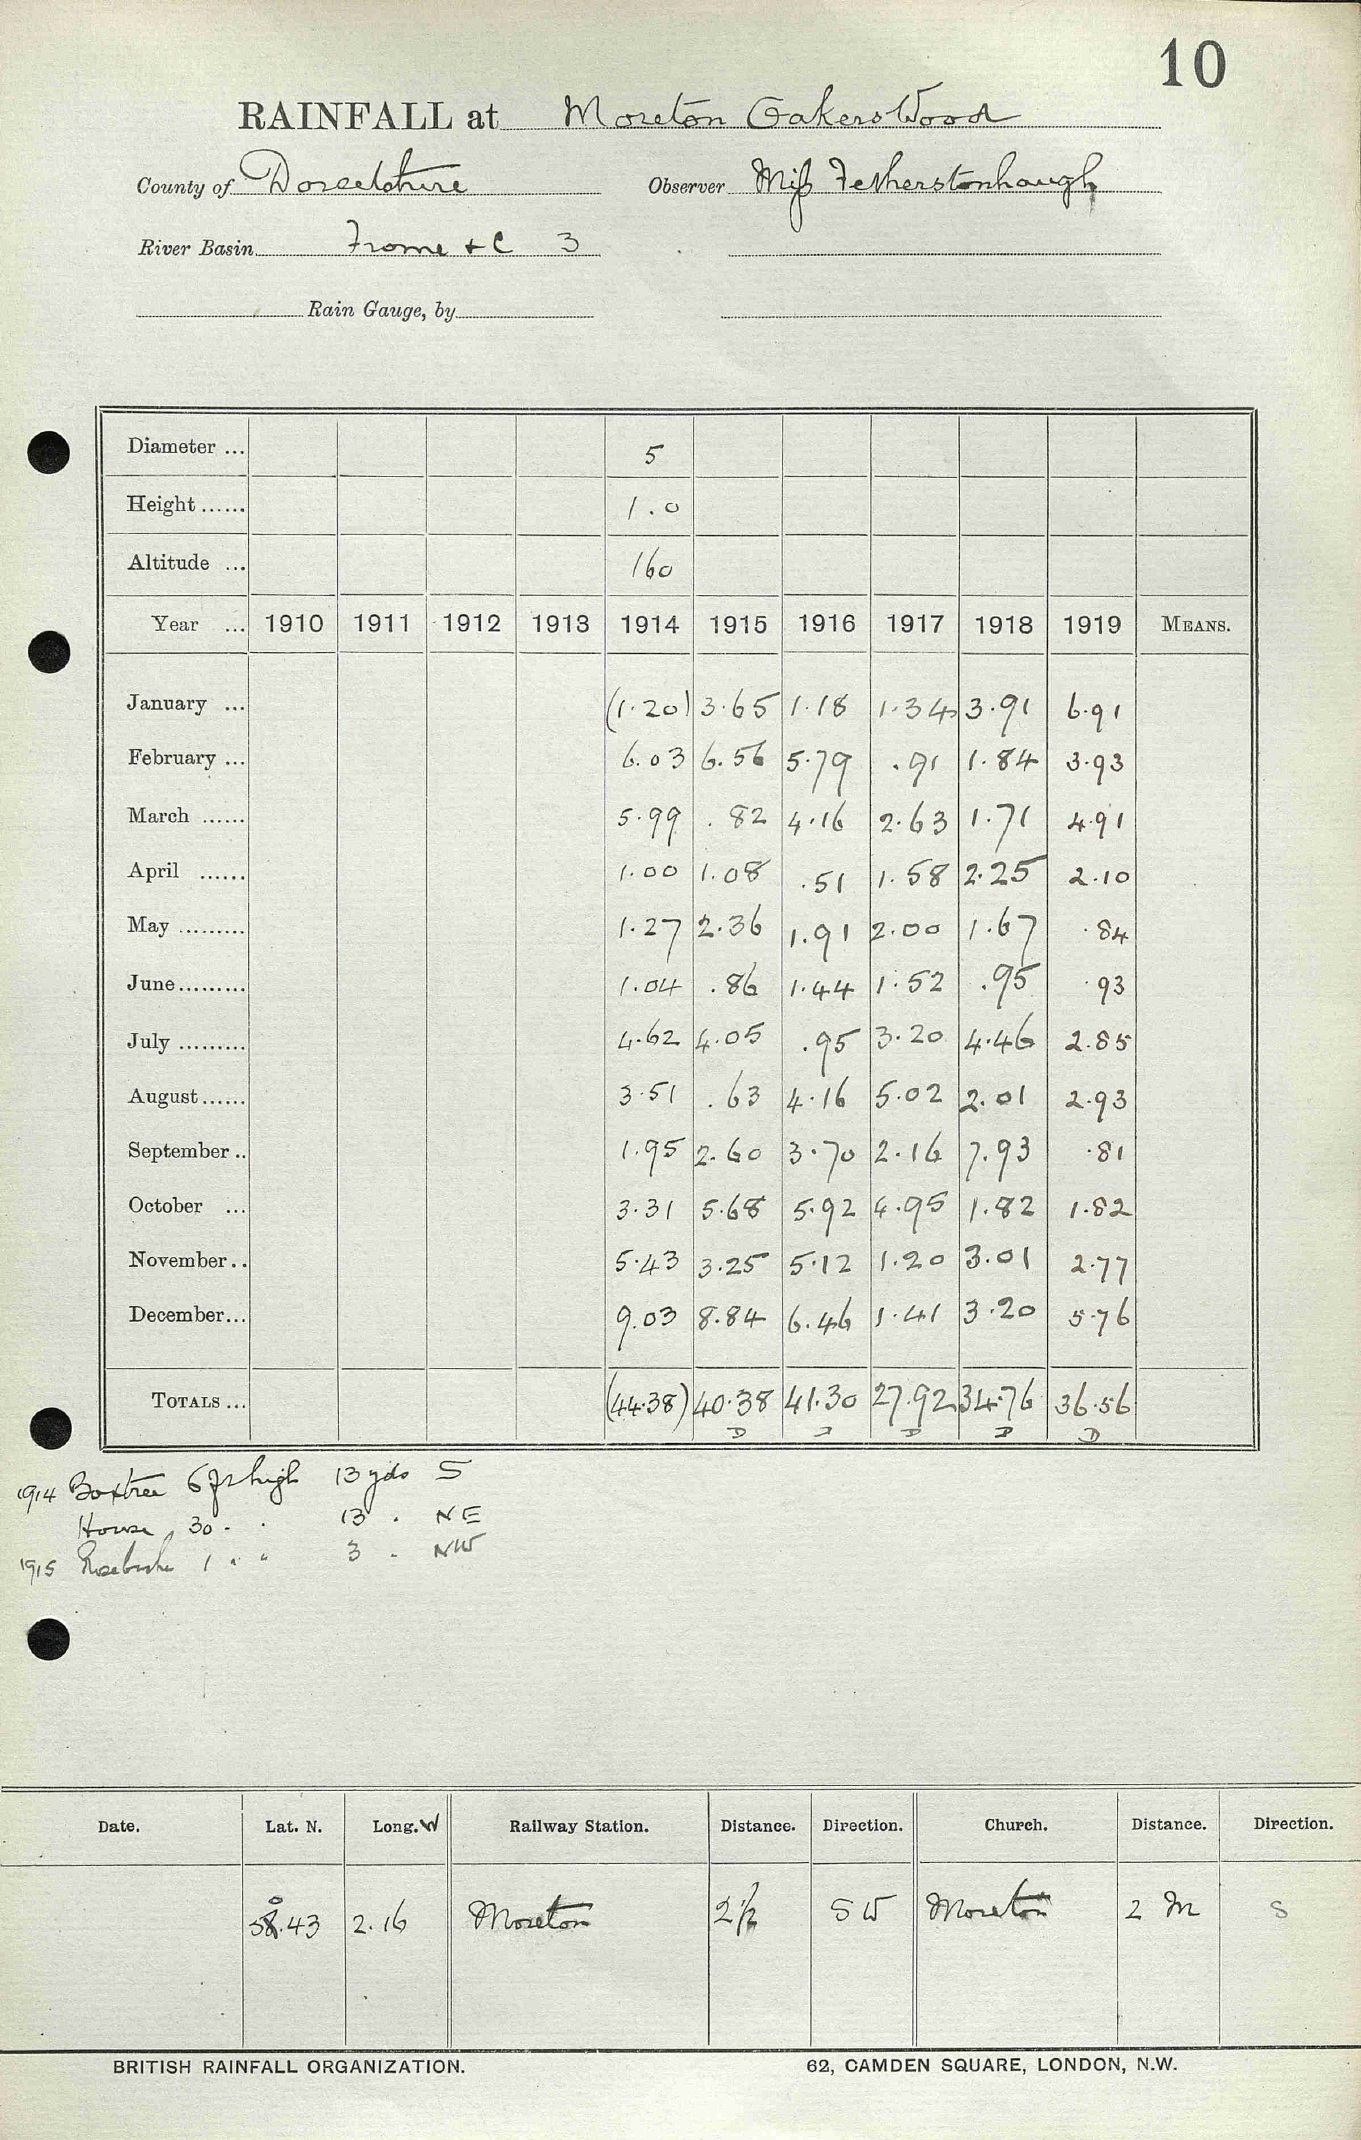 10
RAINFALL at Moreton Oakers Wood
County of Dorsetshire Observer Miss Fetherstonhaugh
River Basin Frome & C 3
Rain Gauge, by
Diameter ... 5
Height ...... 1.0
Altitude ... 160
Year ... 1910 1911 1912 1913 1914 1915 1916 1917 1918 1919 MEANS.
January ... (1.20) 3.65 1.18 1.34 3.91 6.91
February ... 6.03 6.56 5.79 .91 1.84 3.93
March ...... 5.99 .82 4.16 2.63 1.71 4.91
April ...... 1.00 1.08 .51 1.58 2.25 2.10
May ......... 1.27 2.36 1.91 2.00 1.67 .84
June ......... 1.04 .86 1.44 1.52 .95 .93
July ......... 4.62 4.05 .95 3.20 4.46 2.85
August ...... 3.51 .63 4.16 5.02 2.01 2.93
September .. 1.95 2.60 3.70 2.16 7.93 .81
October ... 3.31 5.68 5.92 4.95 1.82 1.82
November .. 5.43 3.25 5.12 1.20 3.01 2.77
December ... 9.03 8.84 6.46 1.41 3.20 5.76
TOTALS ... (44.38) 40.38 41.30 27.92 34.76 36.56
D D D D D
1914 Boxtree 6 ft high 13 yds S
House 30 " " 13 " NE
1915 1 " " 3 " NW
Date. Lat. N. Long. W Railway Station. Distance. Direction. Church. Distance. Direction.
.43 2.16 Moreton 2½ SW Moreton 2 M S
BRITISH RAINFALL ORGANIZATION. 62, CAMDEN SQUARE, LONDON, N.W.